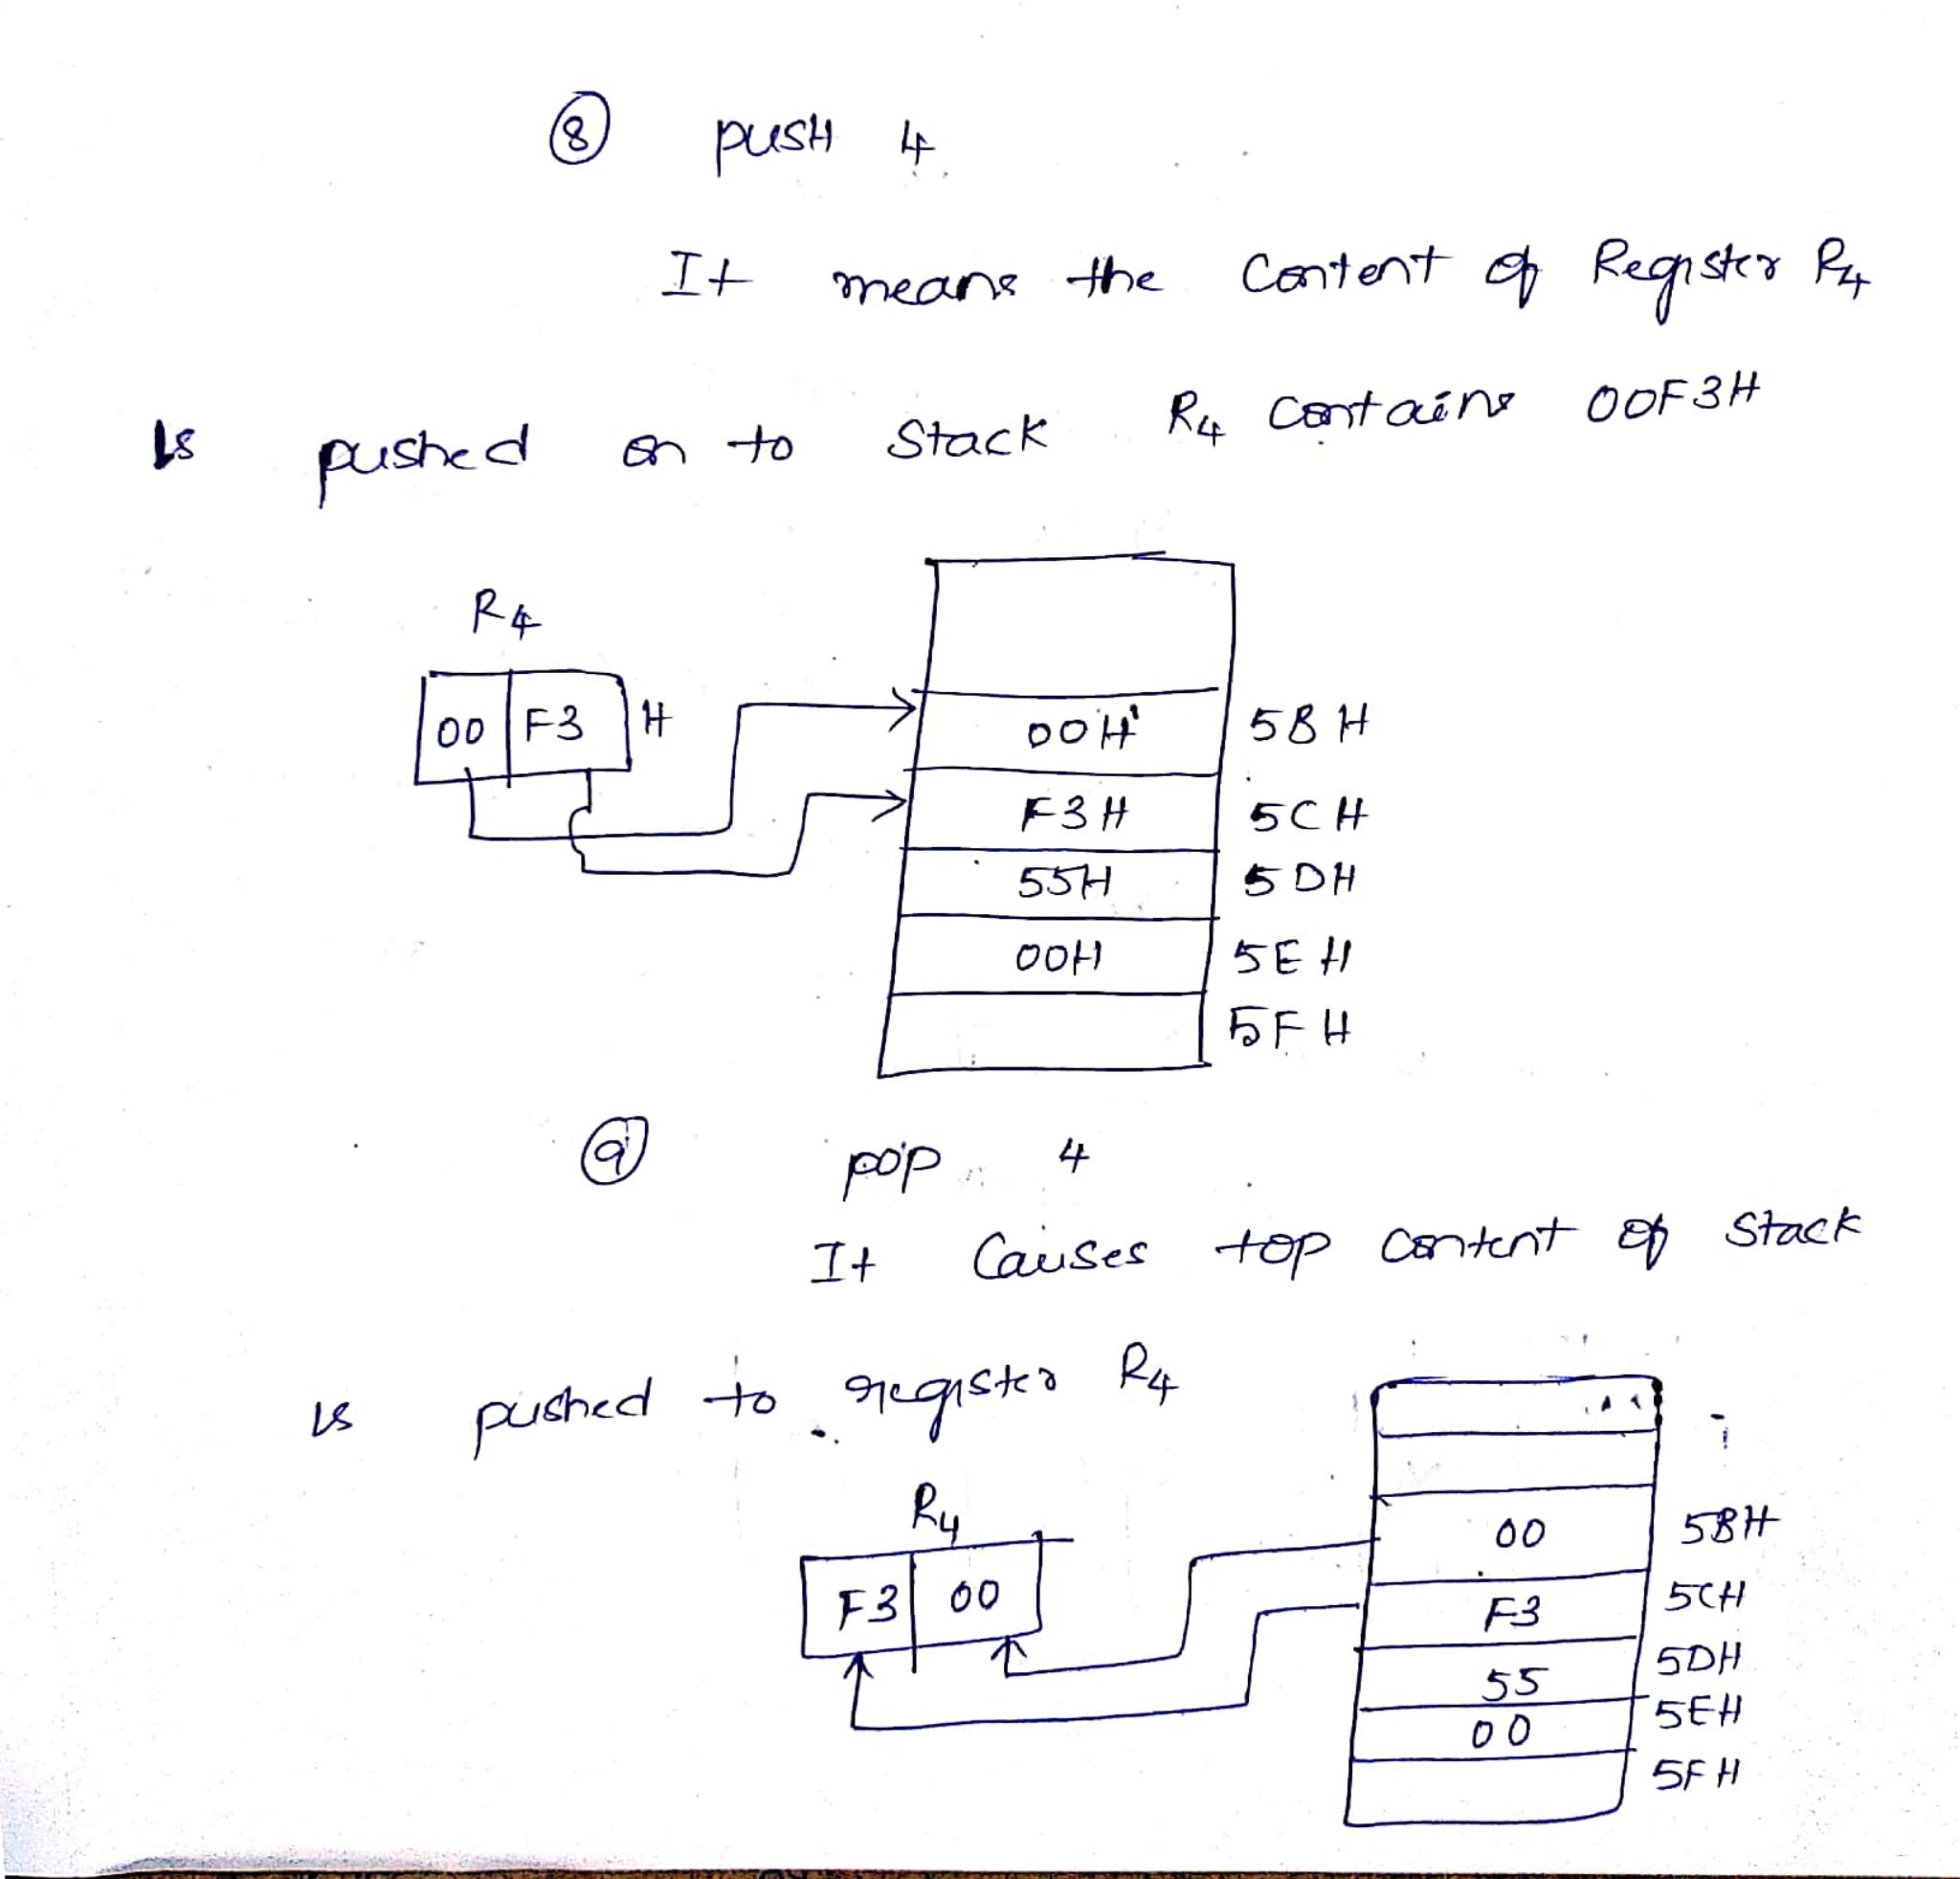 ⑧ PUSH 4
It means the Content of Register R4
Is pushed on to Stack R4 Contains 00F3H
R4
00 F3 H
00H 5BH
F3H 5CH
55H 5DH
00H 5EH
5FH
⑨ pop 4
It Causes top Content of Stack
is pushed to register R4
R4
F3 00
00 5BH
F3 5CH
55 5DH
00 5EH
5FH